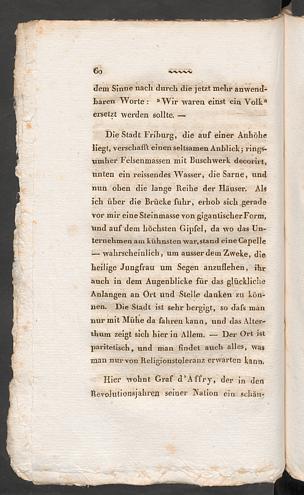 60
dem Sinne nach durch die jetzt mehr anwend-
baren Worte: »Wir waren einst ein Volk«
ersetzt werden sollte. —
Die Stadt Friburg, die auf einer Anhöhe
liegt, verschafft einen seltsamen Anblick; rings-
umher Felsenmassen mit Buschwerk decorirt,
unten ein reissendes Wasser, die Sarne, und
nun oben die lange Reihe der Häuser. Als
ich über die Brücke fuhr, erhob sich gerade
vor mir eine Steinmasse von gigantischer Form,
und auf dem höchsten Gipfel, da wo das Un-
ternehmen am kühnsten war, stand eine Capelle
— wahrscheinlich, um ausser dem Zweke, die
heilige Jungfrau um Segen anzuflehen, ihr
auch in dem Augenblicke für das glückliche
Anlangen an Ort und Stelle danken zu kön-
nen. Die Stadt ist sehr bergigt, so daſs man
nur mit Mühe da fahren kann, und das Alter-
thum zeigt sich hier in Allem. — Der Ort ist
paritetisch, und man findet auch alles, was
man nur von Religionstoleranz erwarten kann.
Hier wohnt Graf d'Affry, der in den
Revolutionsjahren seiner Nation ein schän-